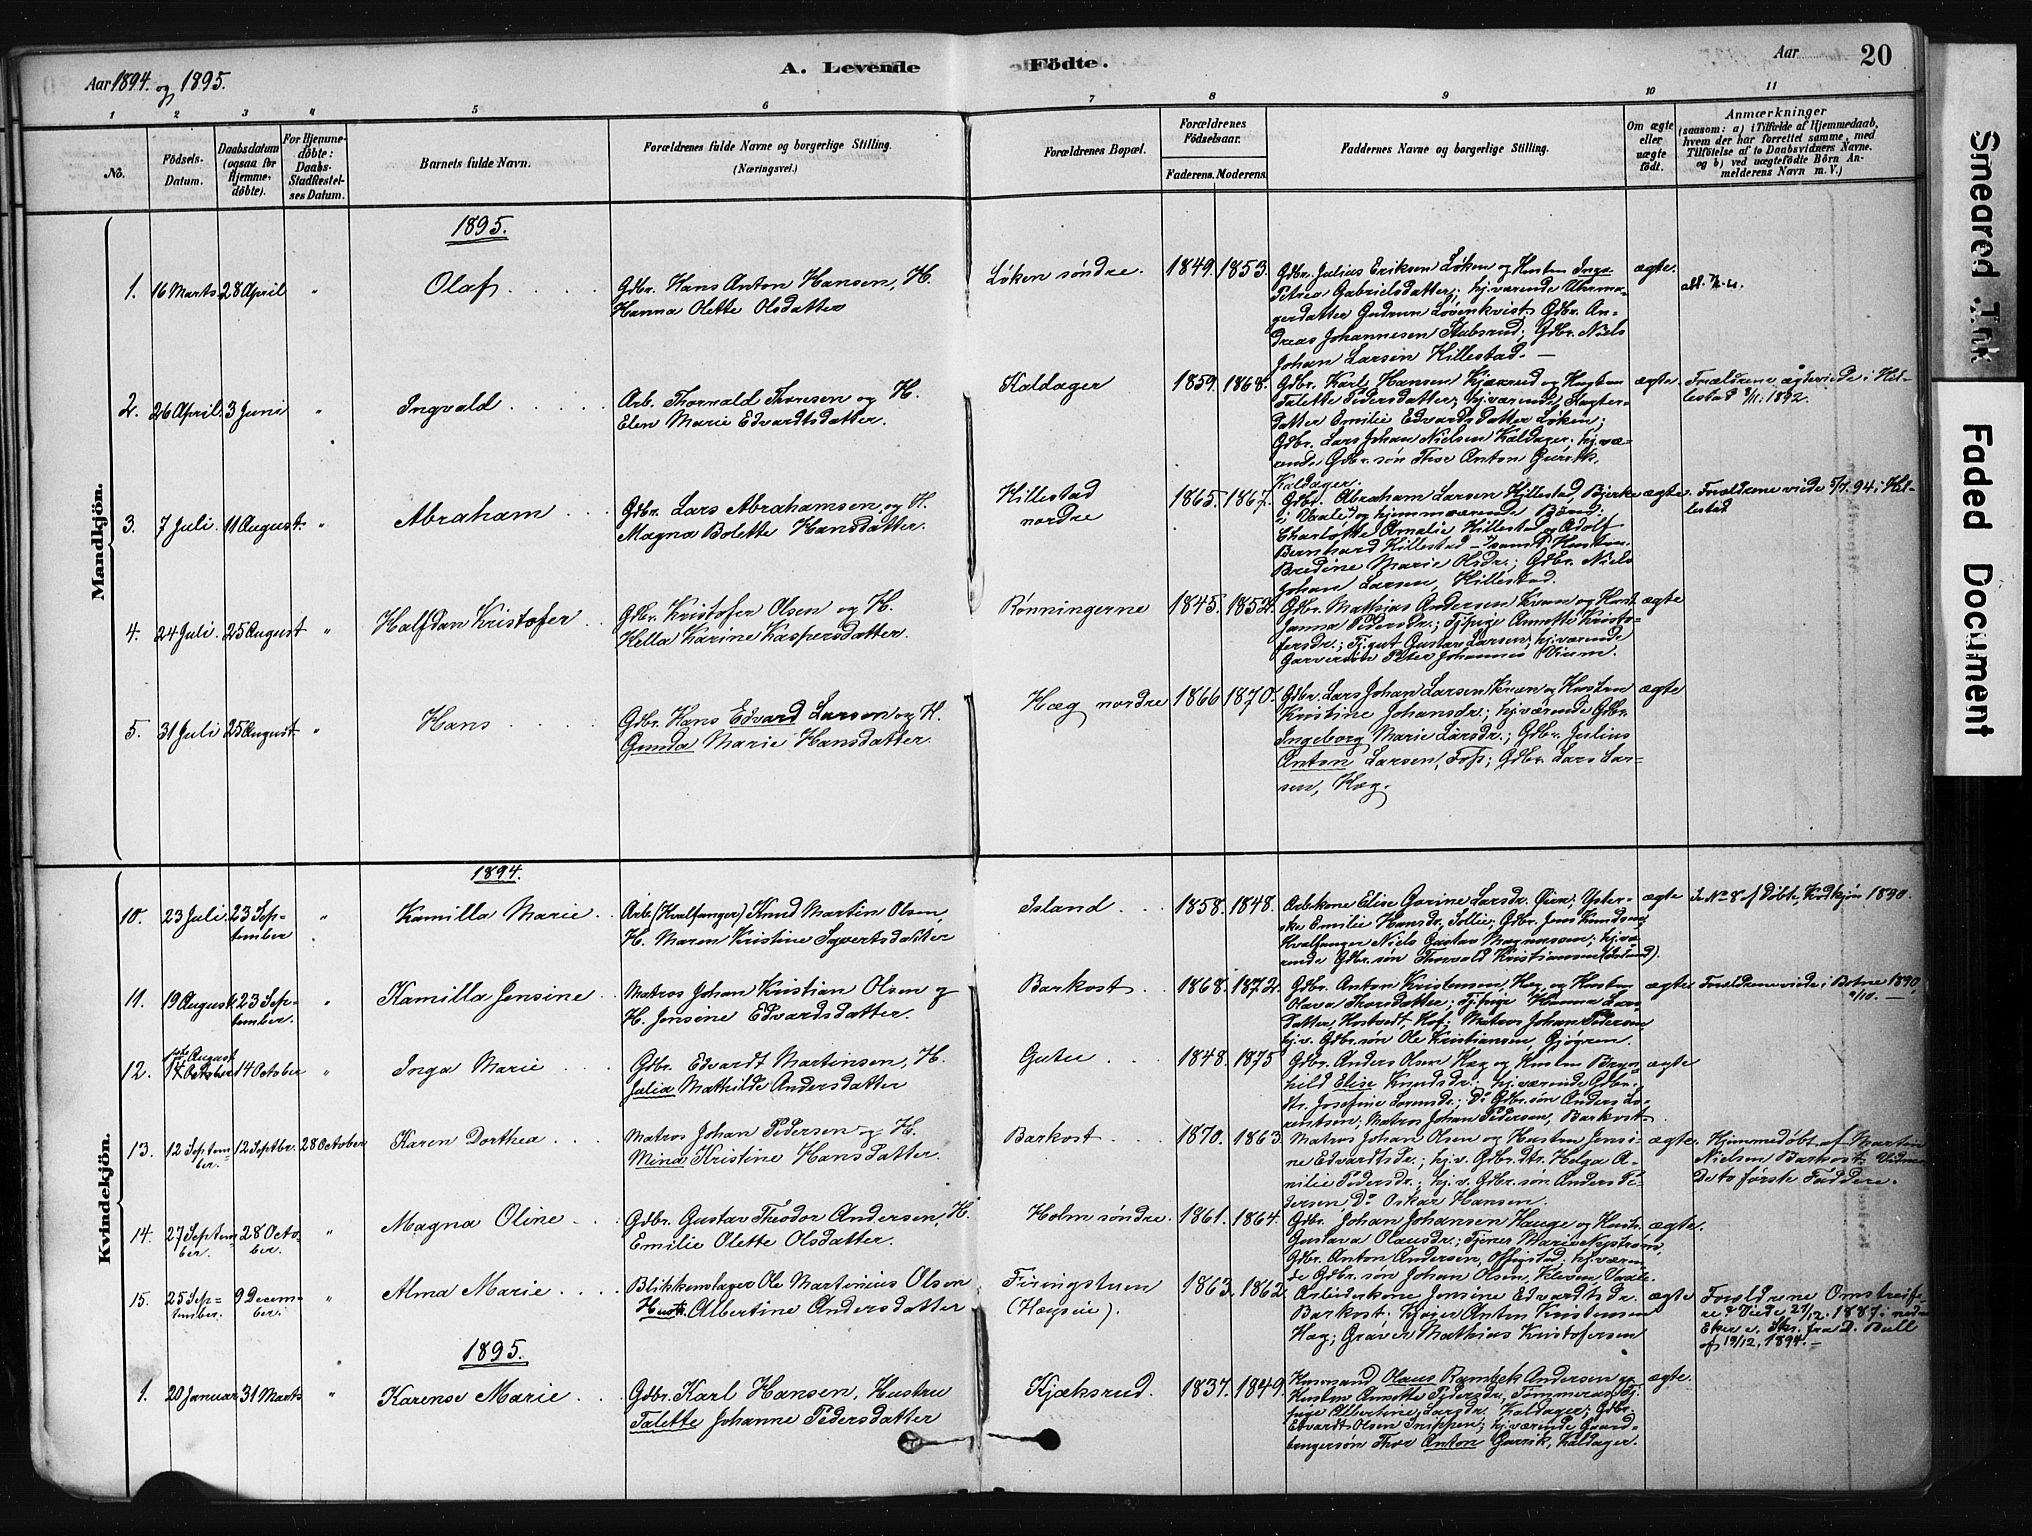 Aar 1894 og 1895.
A. Levende Födte.
Aar 20
1 2 3 4 5 6 7 8 9 10 11
No.
Födsels-Datum.
Daabsdatum (ogsaa for Hjemmedöbte).
For Hjemmedöbte: Daabs-Stadfæstelses Datum.
Barnets fulde Navn.
Forældrenes fulde Navne og borgerlige Stilling.
(Næringsvei.)
Forældrenes Bopæl.
Forældrenes Födselsaar.
Faderens. Moderens.
Faddernes Navne og borgerlige Stilling.
Om ægte eller uægte født.
Anmærkninger
(saasom: a) i Tilfælde af Hjemmedaab, hvem der har forrettet samme, med Tilföielse af to Daabsvidners Navne. og b) ved uægtefödte Börn Anmelderens Navn m. V.)
Mandkjön.
1895.
1. 16 Marts 28 April " Olaf
Gdbr. Hans Anton Hansen, H.
Hanna Olette Olsdatter
Løken søndre. 1849. 1853.
Gdbr. Julius Eriksen Løken og Hustru Inga
Petrea Gabrielsdatter; hj.værende Uhrma-
gerdatter Gudrun Løvenkvist; Gdbr. An-
dreas Johannesen Stubsrud; Gdbr. Niels
Johan Larsen Hillestad. —
ægte.
2. 26 April 3 Juni " Ingvald
Arb. Thorvald Thoresen og H.
Elen Marie Edvardtsdatter.
Kaldager 1859. 1868.
Gdbr. Karl Hansen Kjæxrud og Hustru
Talette Pedersdatter; hj.værende Datter-
datter Emilie Edvardsdatter Løken;
Gdbr. Lars Johan Nielsen Kaldager; hj.væ-
rende Gdbr. søn Thor Anton
Kaldager.
ægte.
Forældrene ægteviede i Hil-
lestad 1892.
3. 7 Juli. 11 August " Abraham
Gdbr. Lars Abrahamsen og H.
Magna Bolette Hansdatter.
Hillestad
nordre
1865. 1867.
Gdbr. Abraham Larsen Hillestad, Bjerke
i Vaale og hjemmeværende Børn:
Charlotte Amalie Hillestad og Adolf
Bernhard Hillestad
Bredine Marie Olsdr.; Gdbr. Niels
Johan Larsen, Hillestad.
ægte.
Forældrene viede 5/7. 94 i Hil-
lestad
4. 24 Juli 25 August " Halfdan Kristofer
Gdbr. Kristofer Olsen og H.
Hella Karine Kaspersdatter.
Rønningerne 1845. 1852.
Gdbr. Mathias Andersen Kræn og Hust.
Janna Pedersdr.; Tj.pige Annette Kristo-
fersdr.; Tj.gut Gustav Larsen; hj.værende
Garversøn Peter Johannes Vium.
ægte
5. 31 Juli 25 August " Hans
Gdbr. Hans Edvard Larsen og H.
Gunda Marie Hansdatter.
Hæg nordre 1866 1870.
Gdbr. Lars Johan Larsen Kræn og Hustru
Kristine Johansdr.; hj.værende Gdbr.
Ingeborg Marie Larsdr.; Gdbr. Julius
Anton Larsen, Fos; Gdbr. Lars Lar-
sen, Hæg.
ægte
Kvindekjön.
1894.
10. 23 Juli. 23 Sep-
tember " Kamilla Marie
Arb. (Hvalfanger) Knud Martin Olsen,
H. Maren Kristine Syvertsdatter
Island 1858. 1848.
Arbkone Elise Gorine Larsdr. Øien; Syster-
ske Emilie Hansdr. Sollie; Gdbr. Jens Knudsen;
Hvalfanger Niels Gustav Magnussen; hj.væ-
rende Gdbr. søn Thorvald Kristiansen
ægte
Se No 8 af Døbte, Kvdkjøn 1890.
11. 19 August 23 Sep-
tember. " Kamilla Jensine
Matros Johan Kristian Olsen og
H. Jensene Edvardsdatter.
Barkost 1868. 1872.
Gdbr. Anton Kristensen, Hæg og Hustru
Olava Thorsdatter; Tj.Pige Hanna Lars-
datter, Hostvedt, Hof; Matros Johan Pedersen
hj.v. Gdbr. søn Ole Kristiansen, Gjøgren.
ægte
Forældrene viede i Botne 1890
12. 14 October " Inga Marie
Gdbr. Edvardt Martinsen, H.
Julia Mathilde Andersdatter
Gutu 1848. 1875
Gdbr. Anders Olsen Hæg og Hustru Bryn-
hild Elise Knudsdr.; hj.værende Gdbr.
dtr. Josefine Lorensdr.; Do Gdbr. søn Anders Lo-
rentsen; Matros Johan Pedersen, Barkost
ægte
13. 12 Septem-
ber. 12 Septbr. 28 October Karen Dorthea
Matros Johan Pedersen og H.
Mina Kristine Hansdatter.
Barkost 1870. 1863
Matros Johan Olsen og Hustru Jensi-
ne Edvardtsdr.; hj.v. Gdbr. dtr. Helga A-
milie Pedersdr.; hj.v. Gdbr. søn Anders Pe-
dersen, Do Oskar Hansen.
ægte.
Hjemmedøbt af Martin
Nielsen Barkost.
De to første Faddere.
14. 27 Septem-
ber. 28 Octo-
ber. " Magna Oline
Gdbr. Gustav Theodor Andersen, H.
Emilie Olette Olsdatter.
Holm søndre. 1861. 1864.
Gdbr. Johan Johansen Hauge og Hustr.
Gustava Olausdr.; Tjener Marie Nystrøm,
Gdbr. Anton Andersen, hj.væren-
de Gdbr. søn Johan Olsen, Kleven, Vaale.
ægte.
15. 25 Sep-
tember. 9 Decem-
ber. " Alma Marie
Blikkenslager Ole Martinius Olsen
Hustr. Albertine Andersdatter
(Hægseie). 1863. 1862
Arbeiderkone Jensine Edvardtsdr.
Barkost; Anton Kristensen
Hæg; Graver Mathias Kristofersen
ægte
Forældrene Omstreife-
re Viede 27/12. 1887 i nedre
Eker fra D. Bull
af 19/12, 1894.
1895.
1. 20 Januar 31 Marts " Karense Marie
Gdbr. Karl Hansen, Hustru
Talette Johanne Pedersdatter
Kjæksrud. 1837. 1849.
Husmand Olaus Rambek Andersen og
Hustru Annette Pedersdr. Tømmeraas; Tj.
pige Albertine Larsdr. Kaldager; Gdbr.
Edvardt Olsen Snippen; hj.værende Gaard-
brugersøn Thor Anton Gurrik, Kaldager.
ægte.
Smeared Ink.
Faded Document